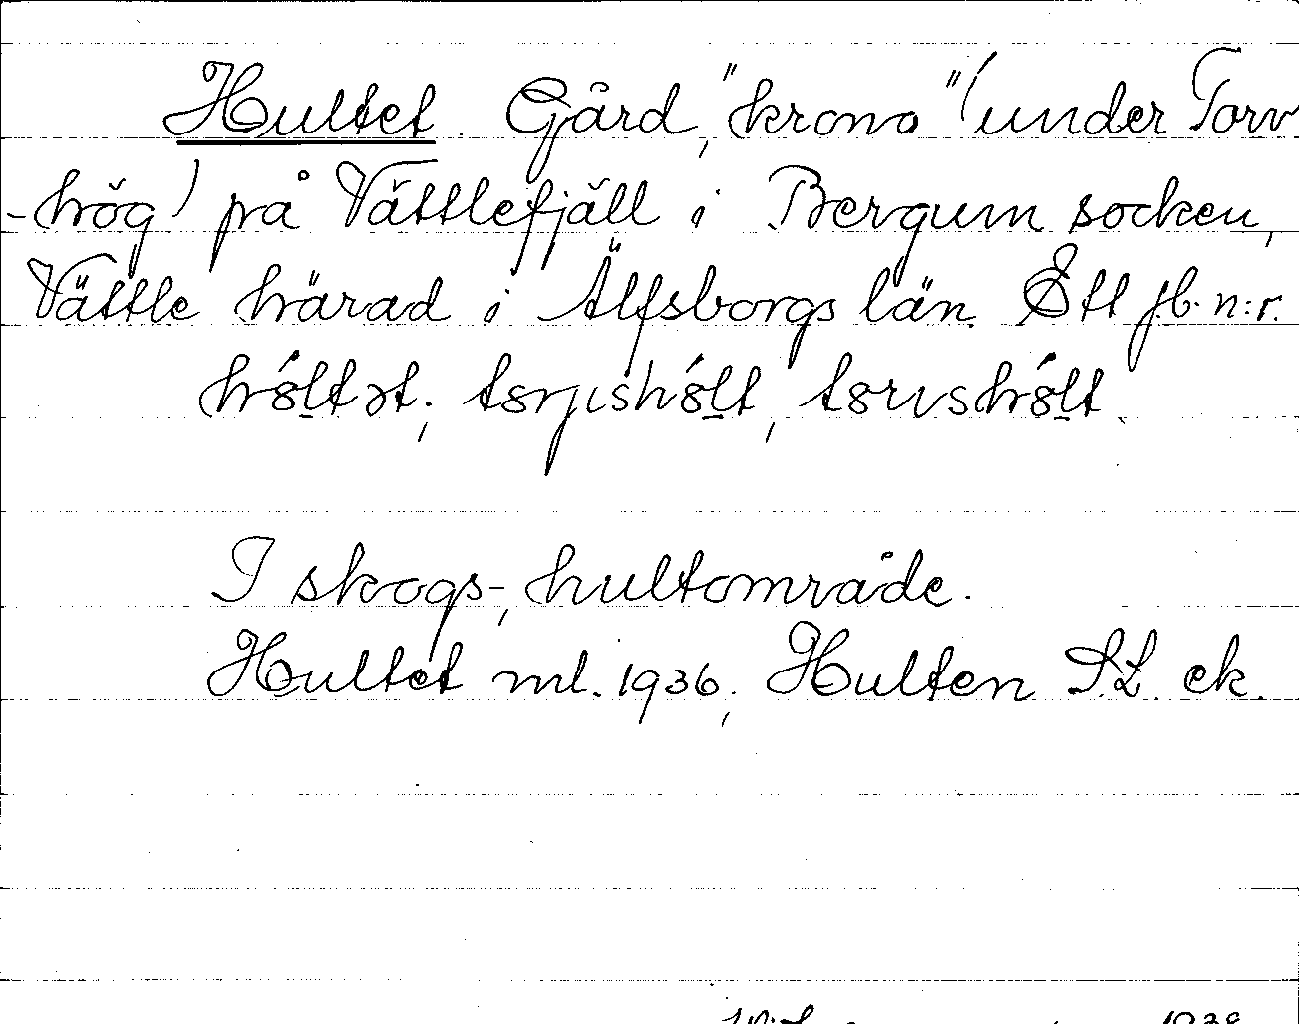 Hultet. Gård, "krono" (under Torv
-hög) på Vättlefjäll i Bergum socken,
Vättle härad i Älfsborgs län. Ett jb. n:r.
I skogs-, hultområde.
Hultet ml. 1936, Hulten S.L. ek.